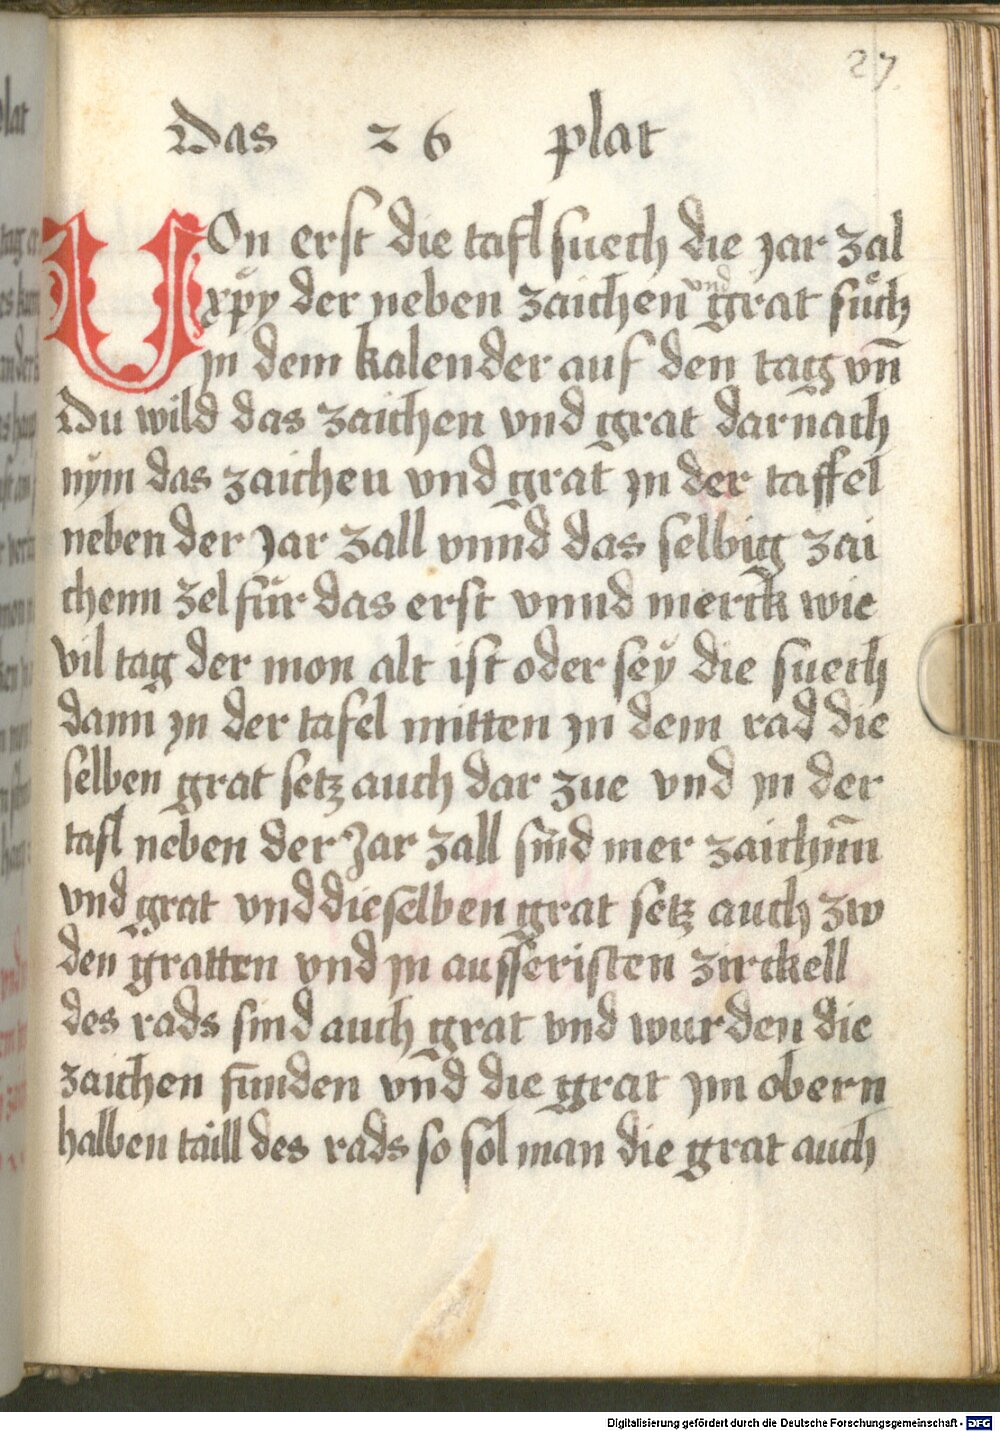 27
Das 26 plat
VOn erst die tafl suech die jar zal
xp̄y der neben zaichen vnd grat sůch
jn dem kalender auf den tag vn̄
Du wild das zaichen vnd grat darnach
nÿm das zaichen vnd grat jn der taffel
neben der Jar zall vnnd das selbig zai
chenn zel für das erst vnnd merck wie
vil tag der mon alt ist oder seÿ die suech
dann jn der tafel mitten jn dem rad die
selben grat setz auch dar zue vnd jn der
tafl neben der Jar zall sind mer zaichn̄n
vnd grat vnd dieselben grat setz auch zw
den gratten vnd jn ausseristen zirckell
des rads sind auch grat vnd wurden die
zaichen funden vnd die grat jm obern
halben taill des rads so sol man die grat auch
Digitalisierung gefördert durch die Deutsche Forschungsgemeinschaft - DFG